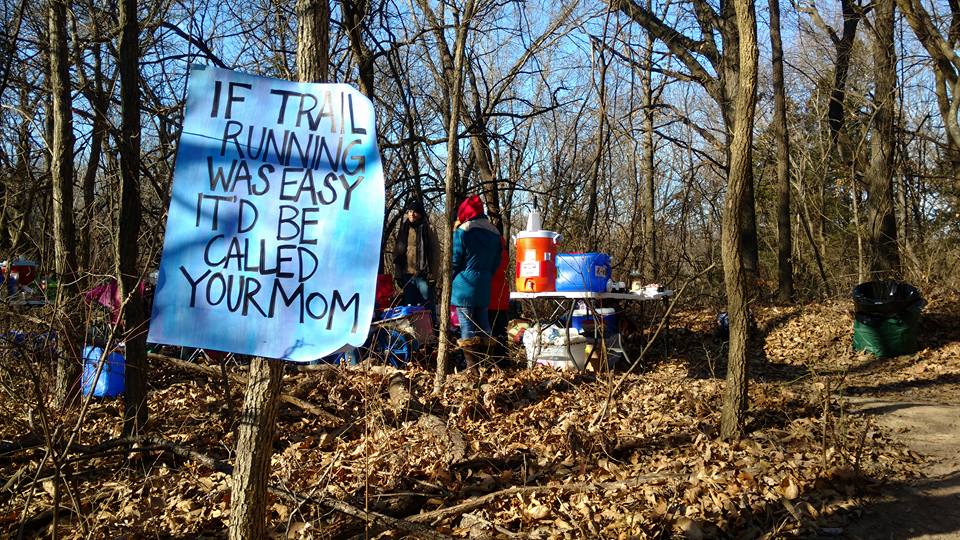 IF TRAIL
RUNNING
WAS EASY
IT'D BE
CALLED
YOUR MOM